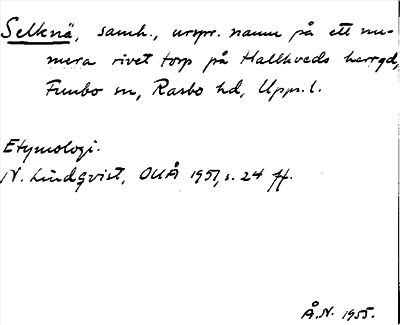 Selknä, samh., urspr. namn på ett nu-
mera rivet torp på Hallkveds herrgd,
Funbo sn, Rasbo hd, Upps. l.
Etymologi.
N. Lindqvist, OUÅ 1951, s. 24 ff.
Å.N. 1955.